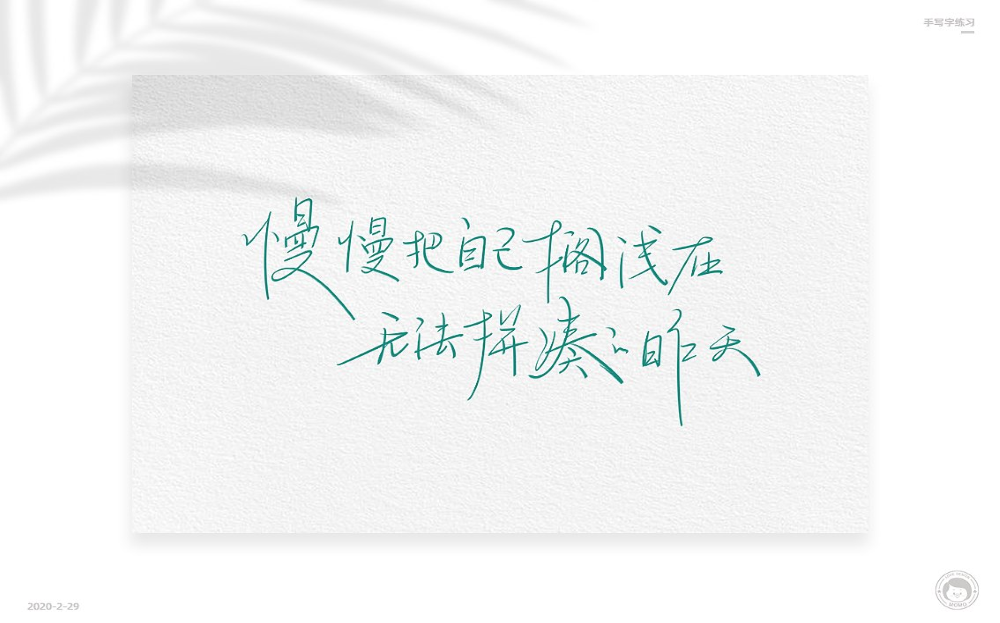 手写字练习
慢慢把自己搁浅在
无法拼凑的昨天
2020-2-29